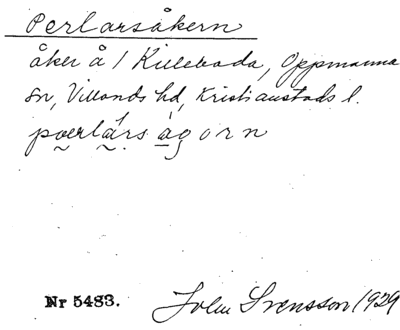 Perlarsåkern
åker å 1 Killeboda, Oppmanna
sn, Villands hd, Kristianstads l.
pærlársågorn
Nr 5483.
John Svensson 1929